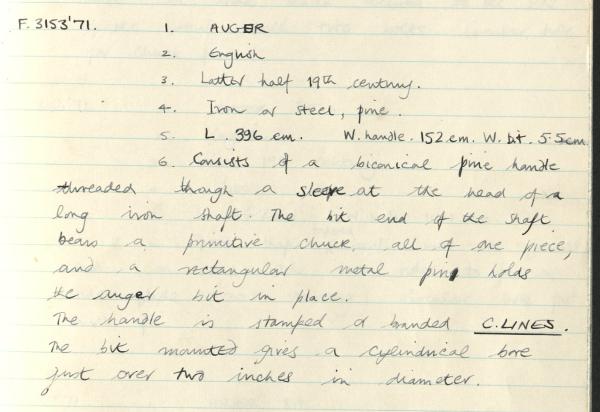 F.3153'71. 1. AUGER
2. English
3. Latter half 19th century.
4. Iron or steel, pine.
5. L. 396 cm. W. handle. 152 cm. W. bit. 5.5cm
6. Consists of a biconical pine handle
threaded though a sleeve at the head of a
long iron shaft. The bit end of the shaft
bears a primitive chuck, all of one piece,
and a rectangular metal pin holds
the auger bit in place.
The handle is stamped or branded C.LINES.
The bit mounted gives a cylindrical bore
just over two inches in diameter.